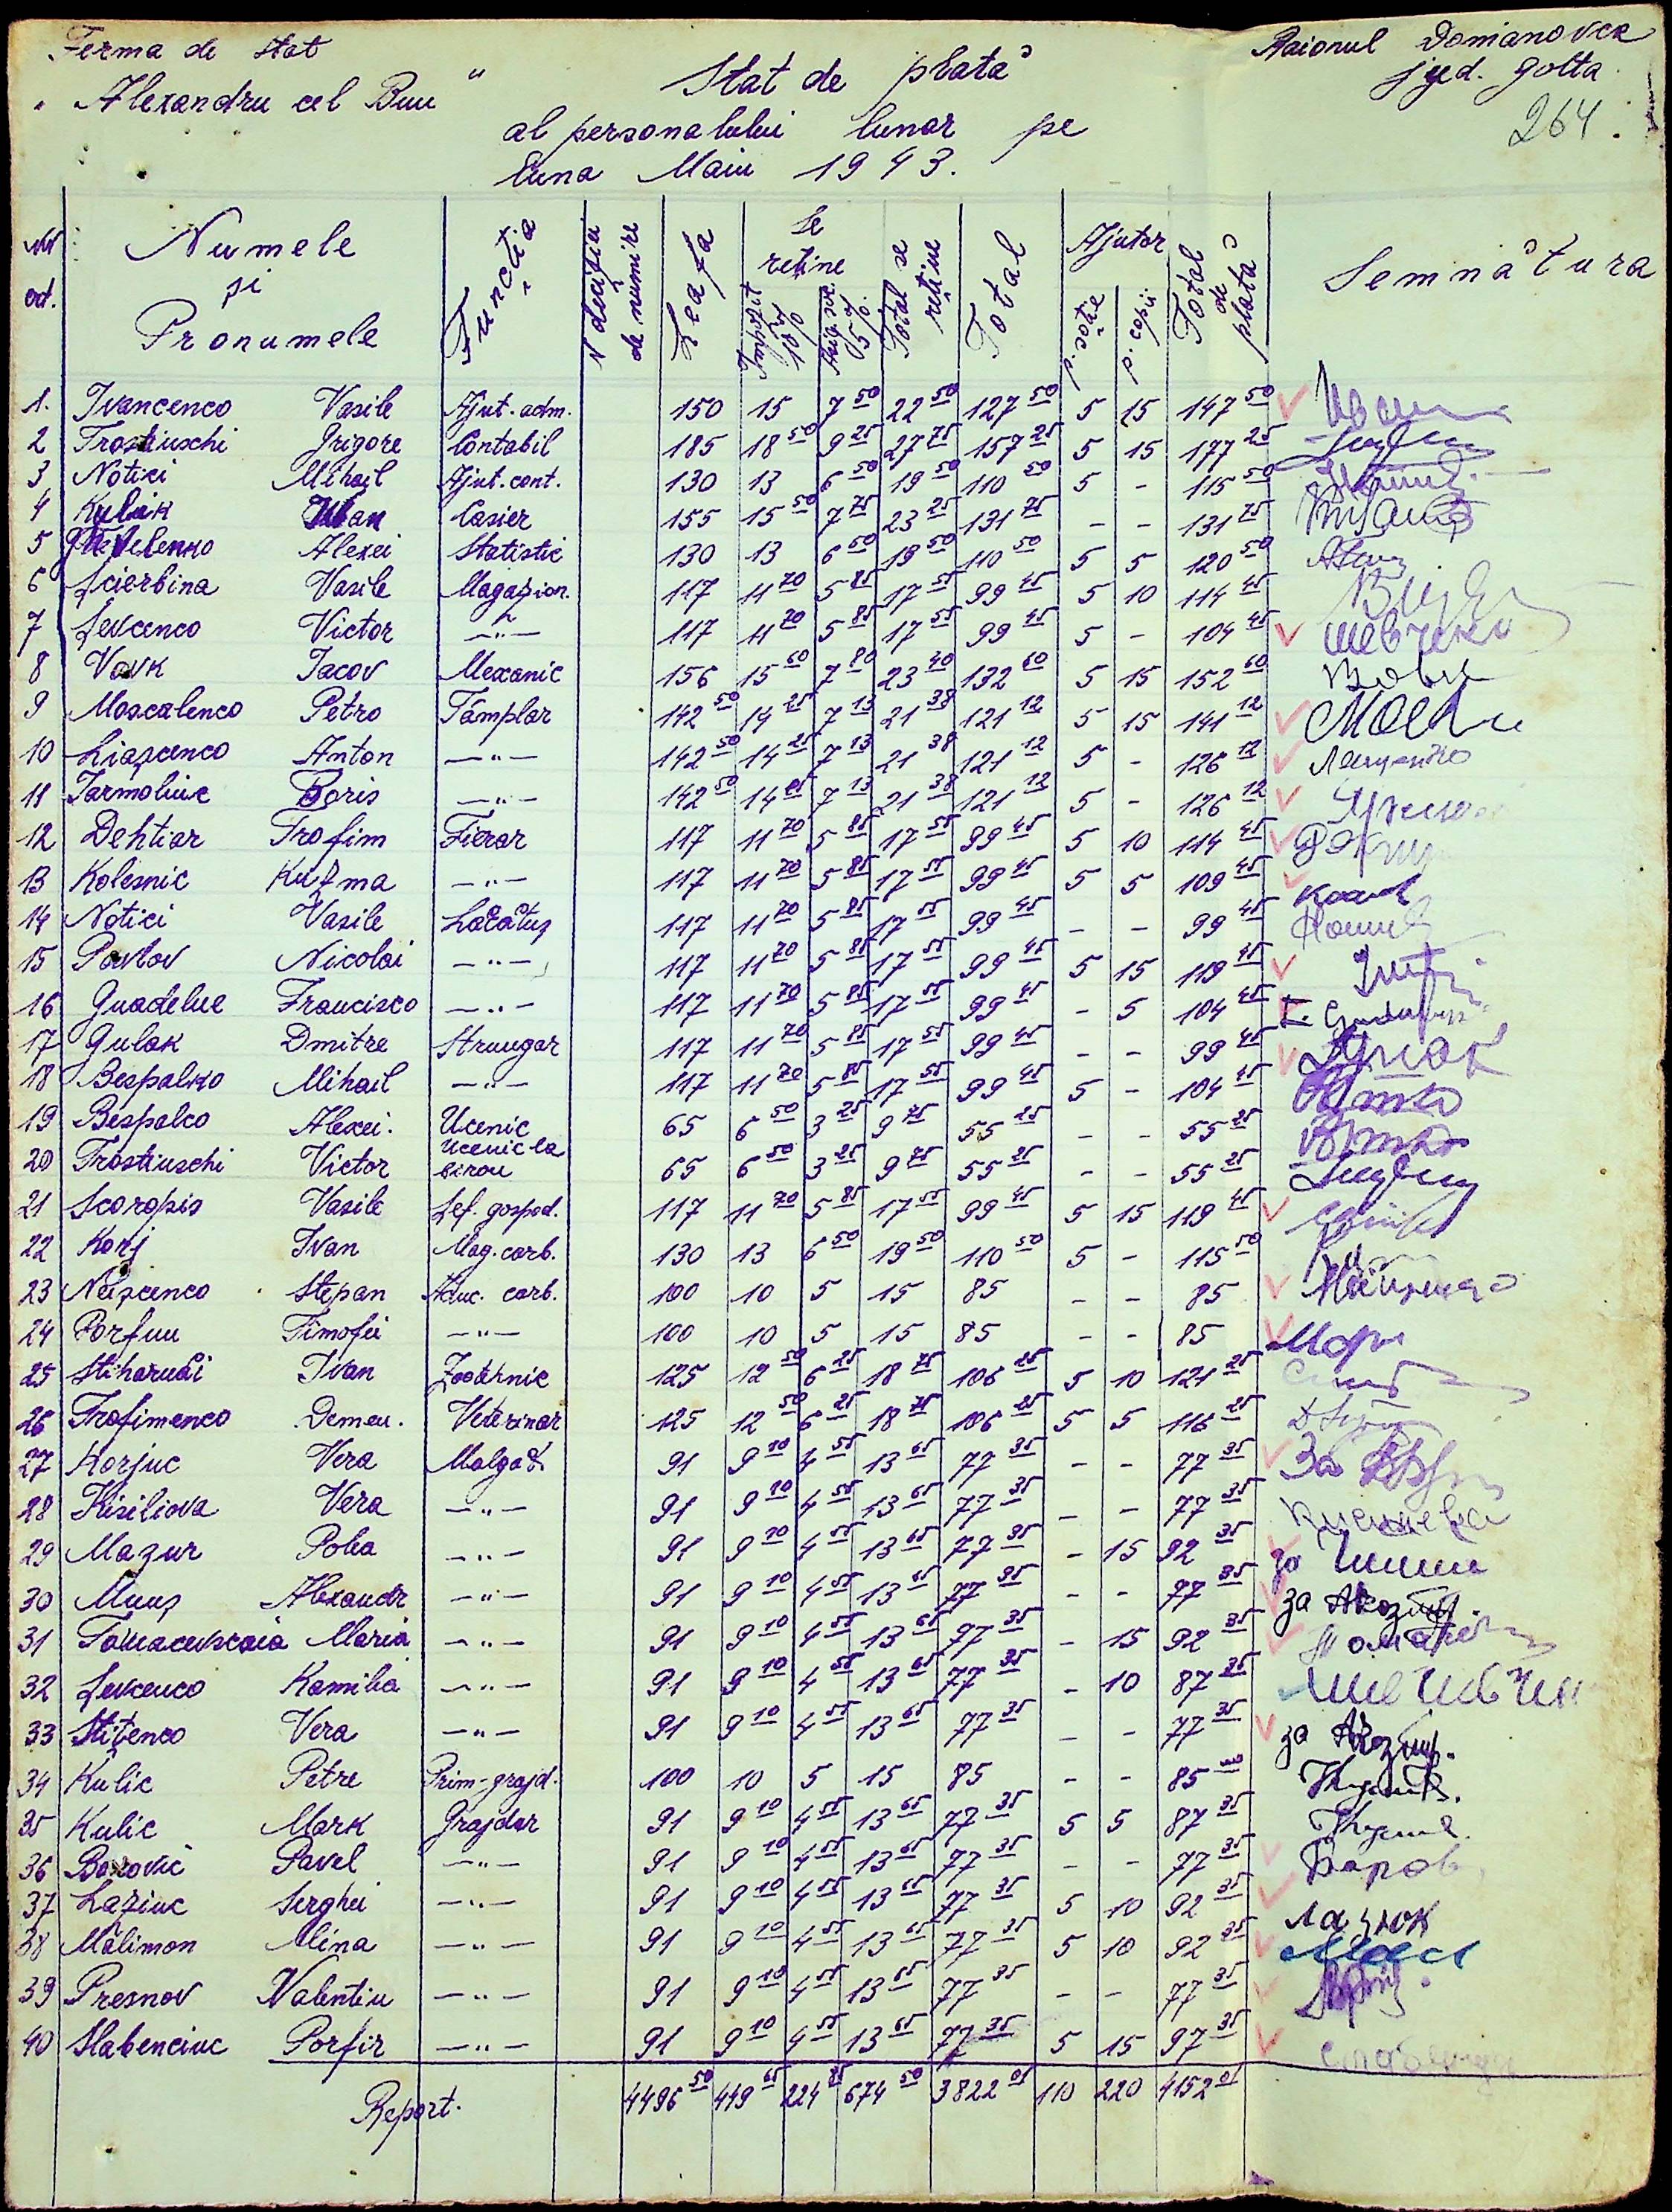 Ferma de stat
„Alexandru cel Bun"
Raionul Domanovca
jud. Golta
264.
Stat de plată
al personalului lunar pe
luna Maiu 1943.
Nr ord. | Numele și Pronumele | Funcția | N deciziei de numire | Leafa | Se retine: Impozit 10% | 5% | Total se retine | Total | Ajutor: p. soție | p. copii | Total de plată | Semnătura
1. Ivancenco Vasile Ajut. adm. 150 15 7 50 22 50 127 50 5 15 147 50
2 Trostiuschi Grigore Contabil 185 18 50 9 25 27 75 157 25 5 15 177 25
3 Notici Mihail Ajut. cont. 130 13 6 50 19 50 110 50 5 - 115 50
4 Kulik Ivan Casier 155 15 50 7 75 23 25 131 75 - - 131 75
5 Alexei Statistic 130 13 6 50 19 50 110 50 5 5 120 50
6 Șcierbina Vasile Magazion. 117 11 70 5 85 17 55 99 45 5 10 114 45
7 Șevcenco Victor —"— 117 11 70 5 85 17 55 99 45 5 - 104 45 Шевченко
8 Vovk Iacov Mexanic 156 15 60 7 80 23 40 132 60 5 15 152 60 Вовк
9 Moscalenco Petro Tâmplar 142 50 14 25 7 13 21 38 121 12 5 15 141 12
10 Liașcenco Anton —"— 142 50 14 25 7 13 21 38 121 12 5 - 126 12 Лященко
11 Iarmoliuc Boris —"— 142 50 14 25 7 13 21 38 121 12 5 - 126 12
12 Dehtiar Trofim Fierar 117 11 70 5 85 17 55 99 45 5 10 114 45
13 Kolesnic Kuzma —"— 117 11 70 5 85 17 55 99 45 5 5 109 45
14 Notici Vasile Lăcătuș 117 11 70 5 85 17 55 99 45 - - 99 45
15 Pavlov Nicolai —"— 117 11 70 5 85 17 55 99 45 5 15 119 45
16 Guadelue Francisco —"— 117 11 70 5 85 17 55 99 45 - 5 104 45
17 Gulak Dmitre Strungar 117 11 70 5 85 17 55 99 45 - - 99 45
18 Bespalko Mihail —"— 117 11 70 5 85 17 55 99 45 5 - 104 45
19 Bespalco Alexei. Ucenic 65 6 50 3 25 9 75 55 25 - - 55 25
20 Trostiuschi Victor Ucenic la birou 65 6 50 3 25 9 75 55 25 - - 55 25
21 Scoropis Vasile Șef. gospod. 117 11 70 5 85 17 55 99 45 5 15 119 45
22 Korj Ivan Mag. carb. 130 13 6 50 19 50 110 50 5 - 115 50
23 Neișcenco Stepan Aduc. carb. 100 10 5 15 85 - - 85
24 Porfun Timofei —"— 100 10 5 15 85 - - 85
25 Stiharuci Ivan Zootehnic 125 12 50 6 25 18 75 106 25 5 10 121 25
26 Trofimenco Demeu. Veterinar 125 12 50 6 25 18 75 106 25 5 5 116 25
27 Korjuc Vera Mulgăt. 91 9 10 4 55 13 65 77 35 - - 77 35 За
28 Kisiliova Vera —"— 91 9 10 4 55 13 65 77 35 - - 77 35
29 Mazur Polea —"— 91 9 10 4 55 13 65 77 35 - 15 92 35 за
30 Alexandr —"— 91 9 10 4 55 13 65 77 35 - - 77 35 за
31 Tomacevscaia Maria —"— 91 9 10 4 55 13 65 77 35 - 15 92 35
32 Șevcenco Kamilia —"— 91 9 10 4 55 13 65 77 35 - 10 87 35
33 Stițenco Vera —"— 91 9 10 4 55 13 65 77 35 - - 77 35 за
34 Kulic Petre Prim-grajd. 100 10 5 15 85 - - 85 00
35 Kulic Mark Grajdar 91 9 10 4 55 13 65 77 35 5 5 87 35
36 Borovic Pavel —"— 91 9 10 4 55 13 65 77 35 - - 77 35 Боров
37 Laziuc Serghei —"— 91 9 10 4 55 13 65 77 35 5 10 92 35 Лазюк
38 Malimon Mina —"— 91 9 10 4 55 13 65 77 35 5 10 92 35
39 Presnov Valentin —"— 91 9 10 4 55 13 65 77 35 - - 77 35
40 Slabenciuc Porfir —"— 91 9 10 4 55 13 65 77 35 5 15 97 35
Report. 4496 50 449 65 224 85 674 50 3822 01 110 220 4152 01